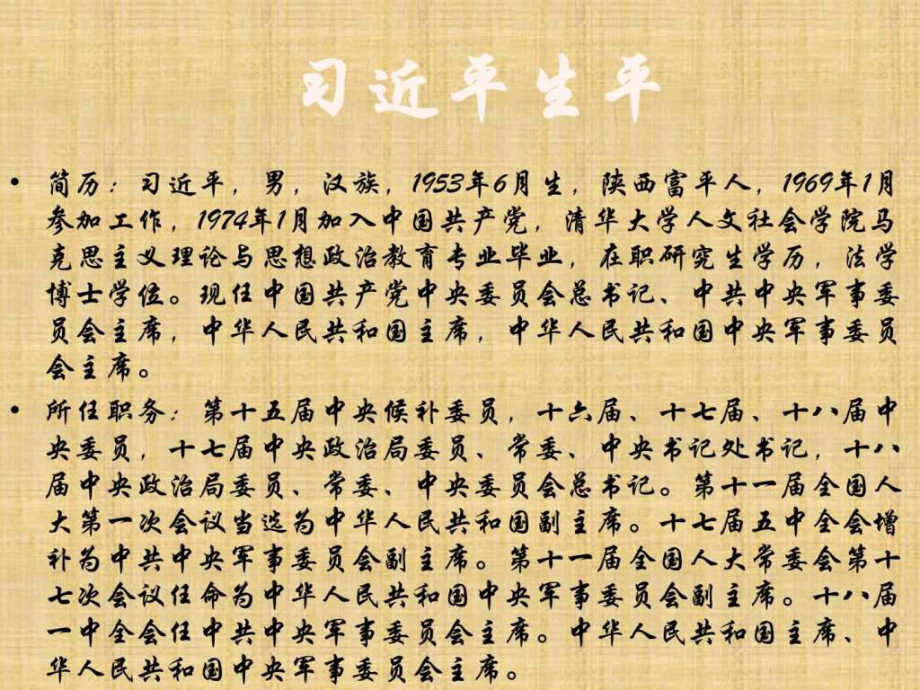 习近平生平
• 简历：习近平，男，汉族，1953年6月生，陕西富平人，1969年1月
参加工作，1974年1月加入中国共产党，清华大学人文社会学院马
克思主义理论与思想政治教育专业毕业，在职研究生学历，法学
博士学位。现任中国共产党中央委员会总书记、中共中央军事委
员会主席，中华人民共和国主席，中华人民共和国中央军事委员
会主席。
• 所任职务：第十五届中央候补委员，十六届、十七届、十八届中
央委员，十七届中央政治局委员、常委、中央书记处书记，十八
届中央政治局委员、常委、中央委员会总书记。第十一届全国人
大第一次会议当选为中华人民共和国副主席。十七届五中全会增
补为中共中央军事委员会副主席。第十一届全国人大常委会第十
七次会议任命为中华人民共和国中央军事委员会副主席。十八届
一中全会任中共中央军事委员会主席。中华人民共和国主席、中
华人民共和国中央军事委员会主席。